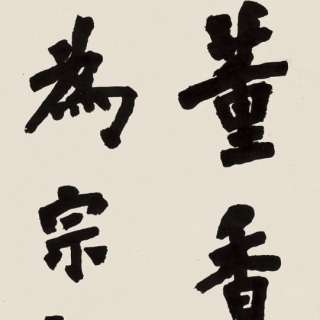 董香
為宗